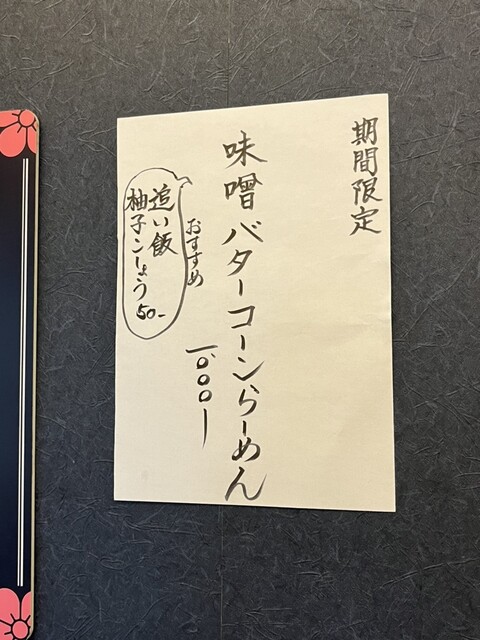 期間限定
味噌バターコーンらーめん
一、〇〇〇ー
おすすめ
追い飯
柚子こしょう 50-